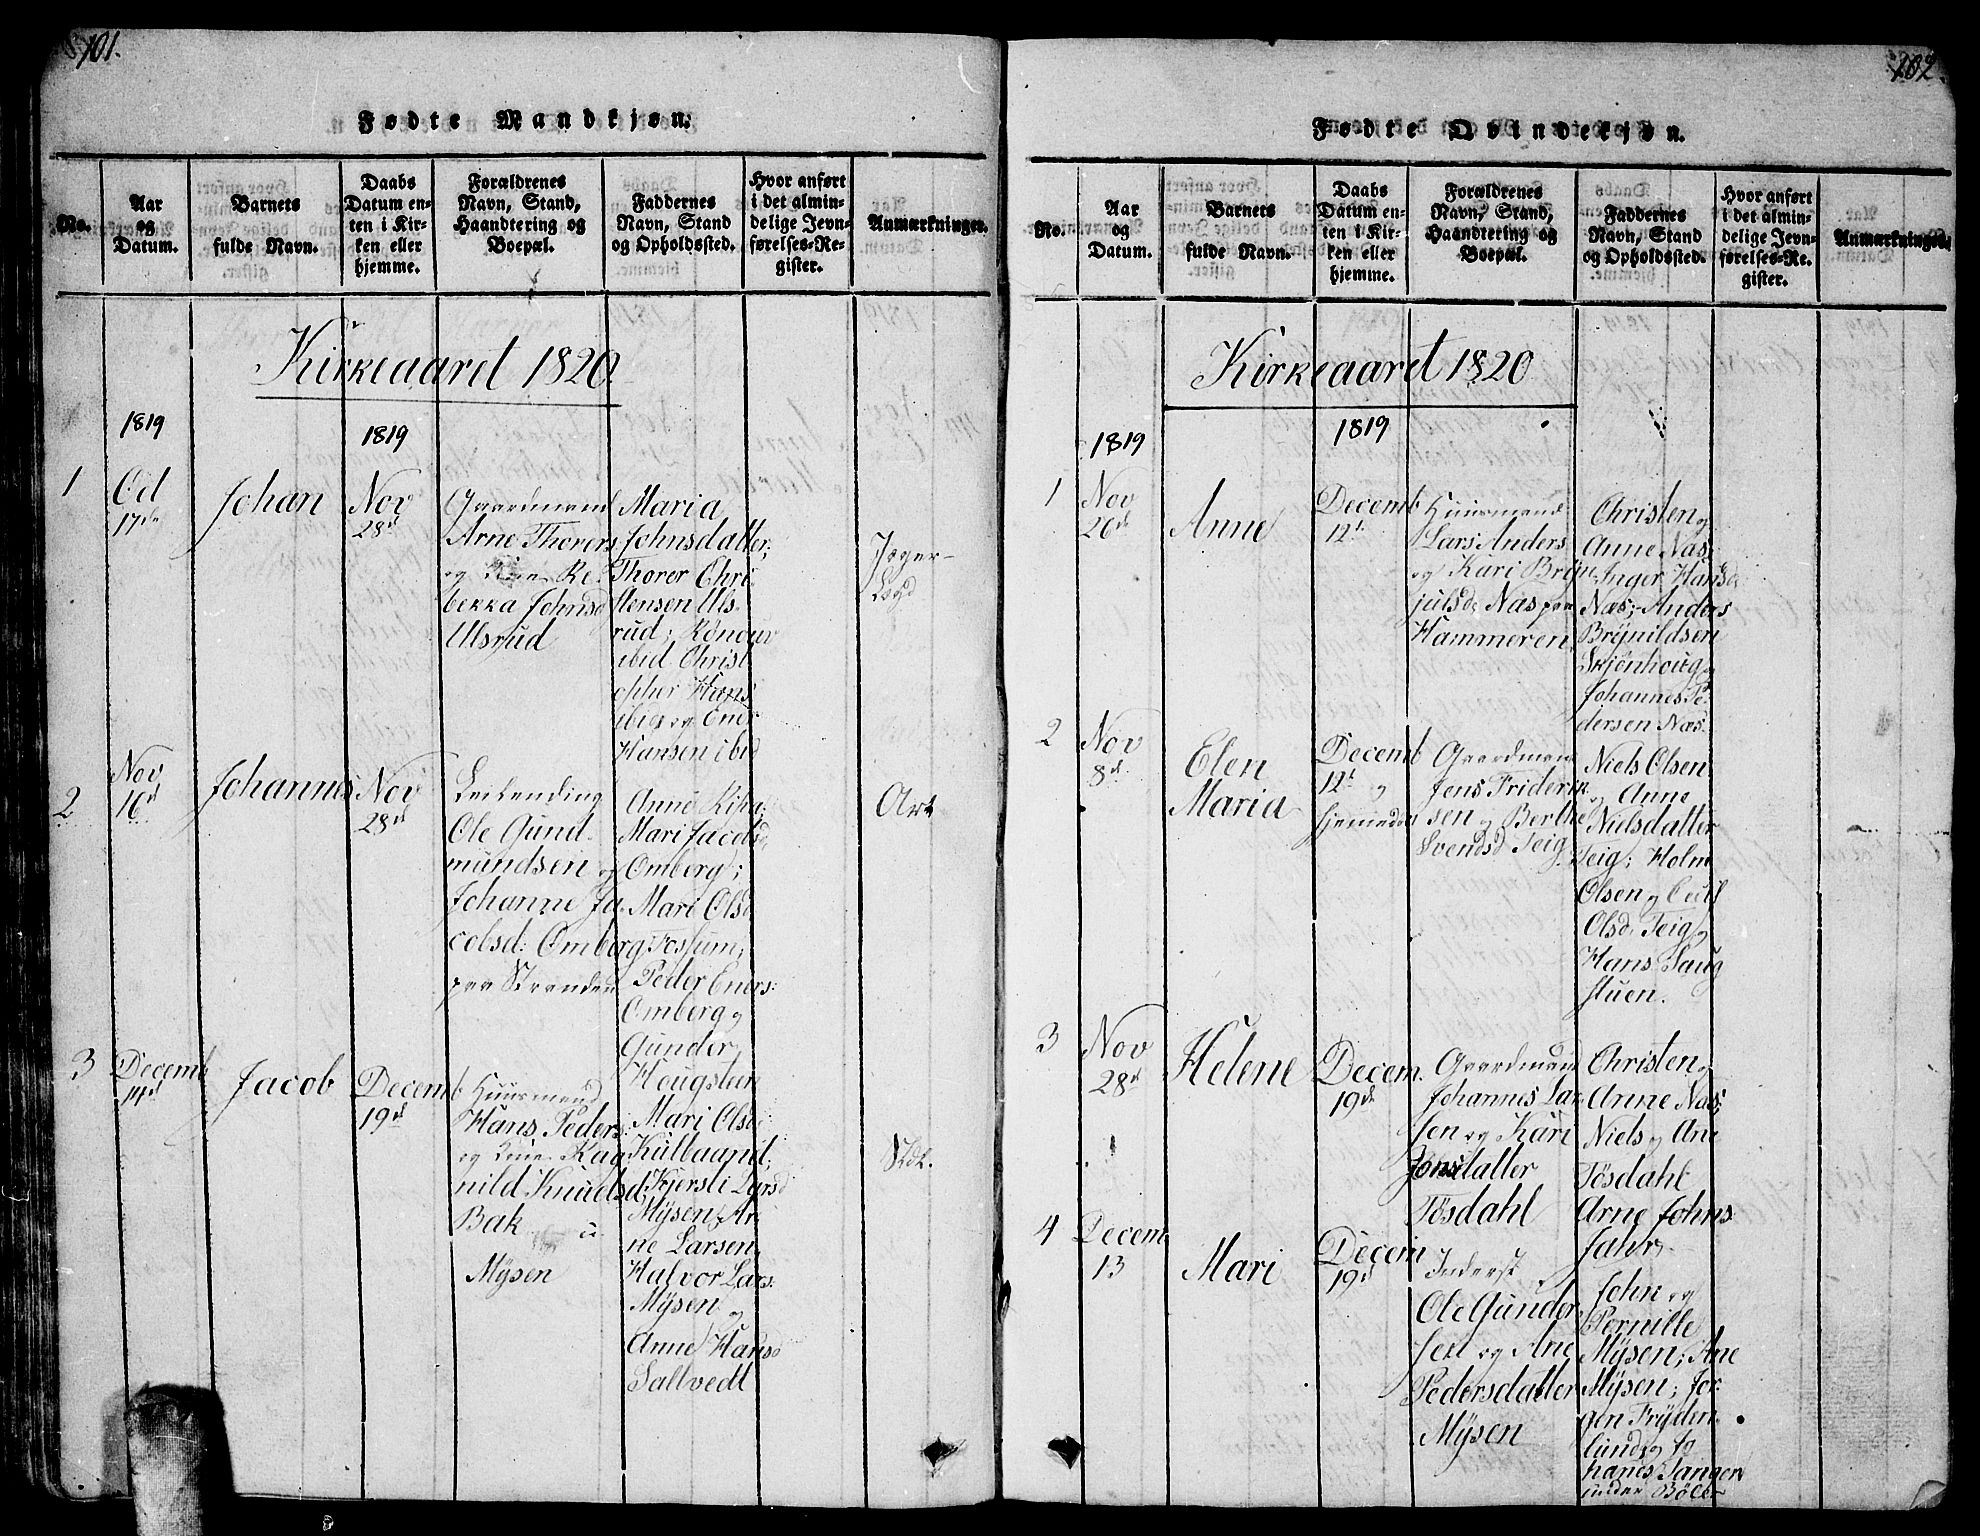 101.
Fødte Mandkjøn.
No.
Aar
og
Datum.
Barnets
fulde Navn.
Daabs
Datum en-
ten i Kir-
ken eller
hjemme.
Forældrenes
Navn, Stand,
Haandtering og
Boepæl.
Faddernes
Navn, Stand
og Opholdssted.
Hvor anført
i det almin-
delige Jevn-
førelses-Re-
gister.
Anmærkninger.
Kirkeaaret 1820.
1819
1819
1
Oct
17de
Johan
Nov
28d
Gaardmand
Arne Thorers
og Re
bekka Johnsd
Ulsrud
Maria
Johnsdatter;
Thorer Chri
stensen Uls-
rud; Rönour
ibid Christ
opher Hans
ibid og
Hansen ibid
Jæger-
2
Nov
16d
Johannes
Nov
28d
Leilending
Ole Gund-
mundsen og
Johanne Ja-
cobsd: Omberg
paa Stranden
Anne
Mari Jacobsd
Omberg;
Mari Olsd
Fossum;
Peder Eners:
Omberg og
Gunder
Hougsteen
Art
3
Decemb
14d
Jacob
Decemb
19d
Huusmand
Hans Peders:
og Rag
nild Knuelsd
Bak u
Mÿsen
Mari Olsd
Kulbaand;
Kjersti Larsd
Mÿsen, Ar
ne Larsen,
Halvor Lars:
Mÿsen og
Anne Hansd
Sallvedt
102.
Fødte Qvindekjøn.
No.
Aar
og
Datum.
Barnets
fulde Navn.
Daabs
Datum en-
ten i Kir-
ken eller
hjemme.
Forældrenes
Navn, Stand,
Haandtering og
Boepæl.
Faddernes
Navn, Stand
og Opholdssted.
Hvor anført
i det almin-
delige Jevn-
førelses-Re-
gister.
Anmærkninger.
Kirkeaaret 1820
1819
1819
1
Nov
26de
Anne
Decemb
12t
Huusmand
Lars Anders
og Kari Brÿn
julsd: Nas paa
Hammeren
Christen og
Anne Nas;
Inger Hansd
Næs; Anders
Brÿnildsen
Skjönhoug og
Johannes Pe-
dersen Næs.
2
Nov
8d
Elen
Maria
Decemb
12t
hjemmedøbt
Gaardmand
Jens Friderik
sen og Berthe
Svendsd Teig
Niels Olsen
og Anne
Nielsdatter
Teig; Holm
Olsen og
Olsd: Teig og
Hans Saug
stuen.
3
Nov
28d
Helene
Decem.
19de
Gaardmand
Johannes Lar
sen og Kari
Jonsdatter
Tösdahl
Christen og
Anne Nas;
Niels og Ane
Tösdahl
Arne Johns
Jahr
4
Decem
13
Mari
Decem
19d
Inderst
Ole Gunder
sen og Ane
Pedersdatter
Mÿsen
John og
Pernille
Mÿsen; Ane
Mÿsen; Jor
gen Frÿden
lund og Jo
hanes Tangen
under